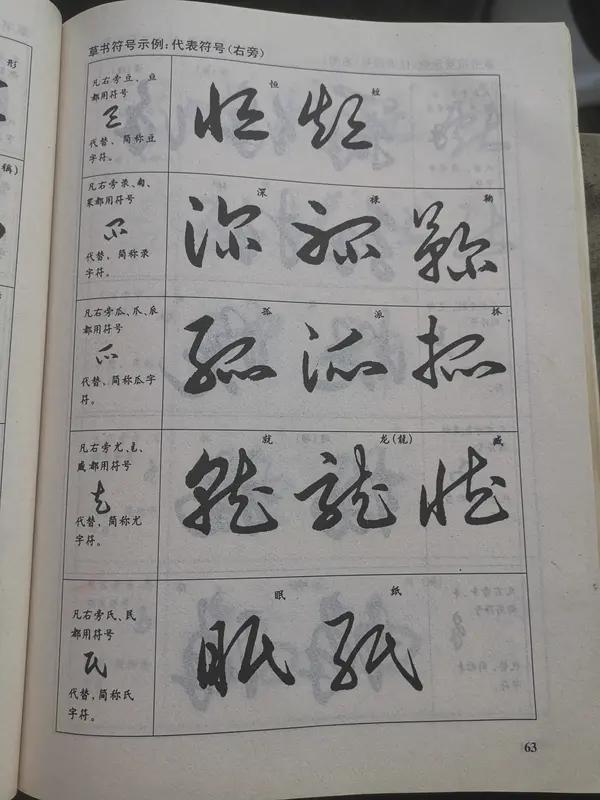 形
稱)
草书符号示例:代表符号(右旁)
凡右旁豆、亘
都用符号
代替,简称豆
字符。
恒
短
凡右旁录、匊、
罙都用符号
代替,简称录
字符。
深
禄
鞠
凡右旁瓜、爪、𠂢
都用符号
代替,简称瓜字
符。
孤
派
抓
凡右旁尤、㐆、
戚都用符号
代替,简称尤
字符。
就
龙(龍)
慼
凡右旁氏、民
都用符号
代替,简称氏
字符。
眠
纸
63